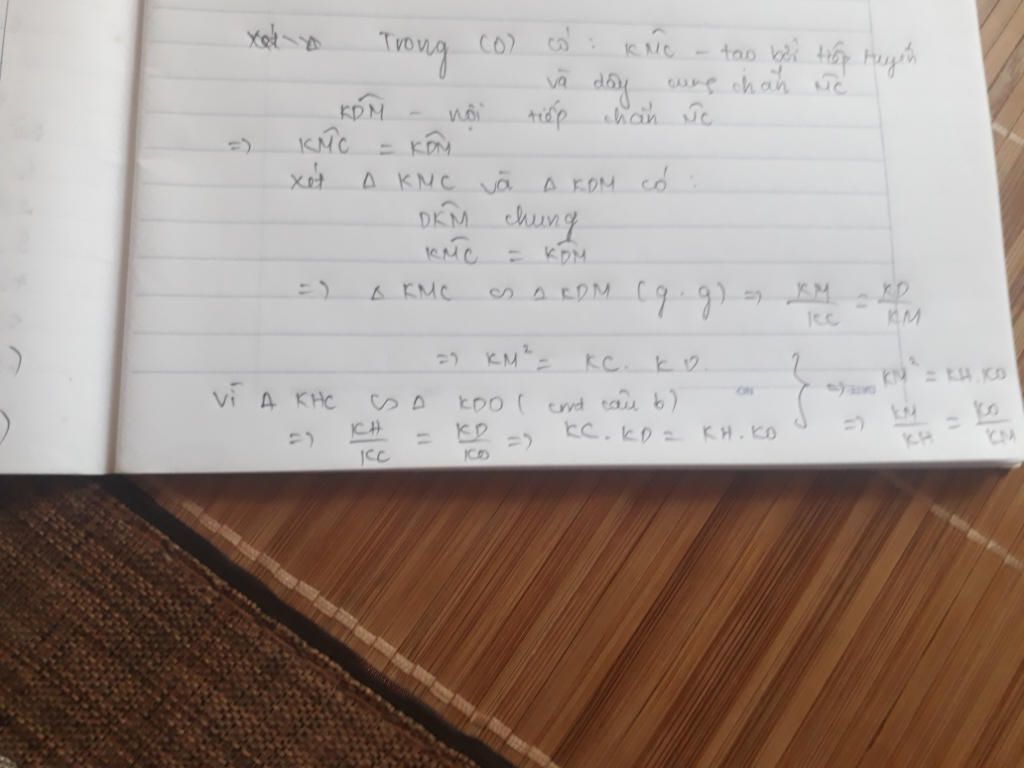 Trong (O) có : KMC - tạo bởi tiếp tuyến
và dây cung chắn MC
KDM - nội tiếp chắn MC
=> KMC = KDM
xét Δ KMC và Δ KDM có :
DKM chung
KMC = KDM
=> Δ KMC ∽ Δ KDM (g.g) => KM/KC = KD/KM
=> KM² = KC. KD. } => KM² = KH.KO
Vì Δ KHC ∽ Δ KDO ( cmt câu b)
=> KH/KC = KD/KO => KC.KD = KH.KO => KM/KH = KO/KM
)
)